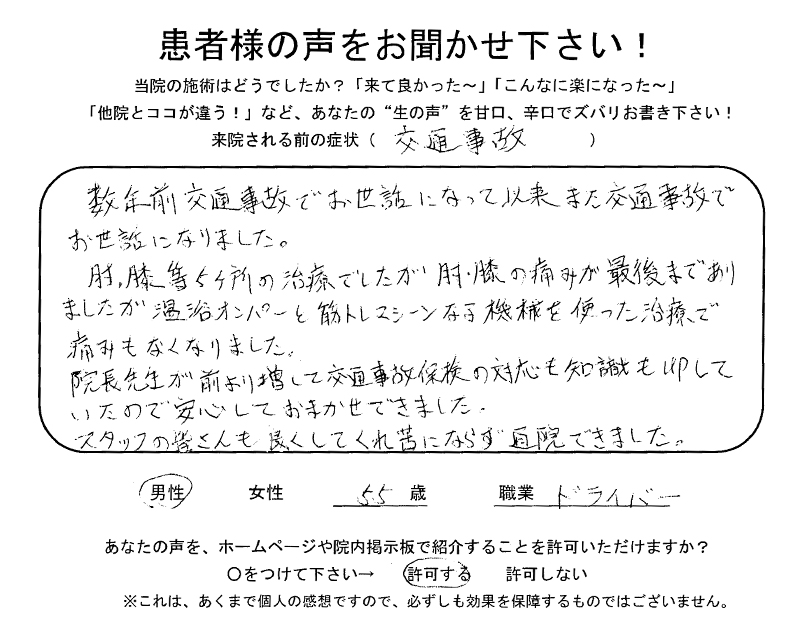 患者様の声をお聞かせ下さい！
当院の施術はどうでしたか？「来て良かった〜」「こんなに楽になった〜」
「他院とココが違う！」など、あなたの“生の声”を甘口、辛口でズバリお書き下さい！
来院される前の症状（ 交通事故 ）
数年前交通事故でお世話になって以来また交通事故で
お世話になりました。
肘,膝等5ヶ所の治療でしたが肘・膝の痛みが最後まであり
ましたが温浴オンパーと筋トレマシーンなる機械を使った治療で
痛みもなくなりました。
院長先生が前より増して交通事故保検の対応も知識もUPして
いたので安心しておまかせできました。
スタッフの皆さんも良くしてくれ苦にならず通院できました。
男性 女性 55 歳 職業 ドライバー
あなたの声を、ホームページや院内掲示板で紹介することを許可いただけますか？
○をつけて下さい→ 許可する 許可しない
※これは、あくまで個人の感想ですので、必ずしも効果を保障するものではございません。